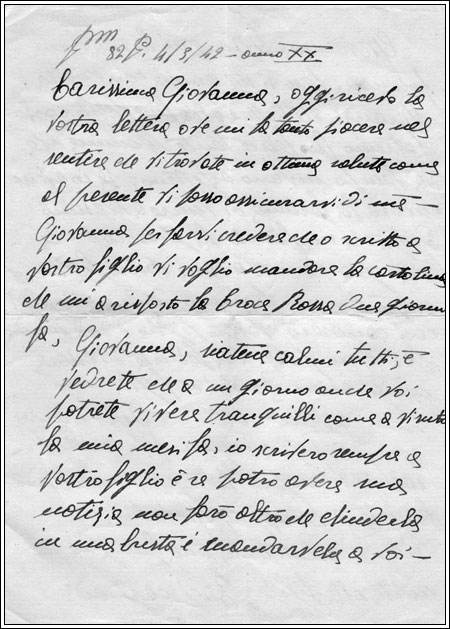 pm
82 P. 4/3/42 - anno XX
Carissima Giovanna, oggi ricevo la
vostra lettera ove mi fa tanto piacere nel
sentire che vi trovate in ottima salute come
al presente vi posso assicurarvi di me -
Giovanna per farvi credere che o scritto a
vostro figlio vi voglio mandare la cartolina
che mi a risposto la Croce Rossa due giorni
fa, Giovanna, siatene calmi tutti, e
vedrete che a un giorno anche voi
potrete vivere tranquilli come a vissuto
la mia mesi fa, io scrivero sempre a
vostro figlio è se potro avere una
notizia non farò altro che chiuderla
in una busta é mandarvela a voi -